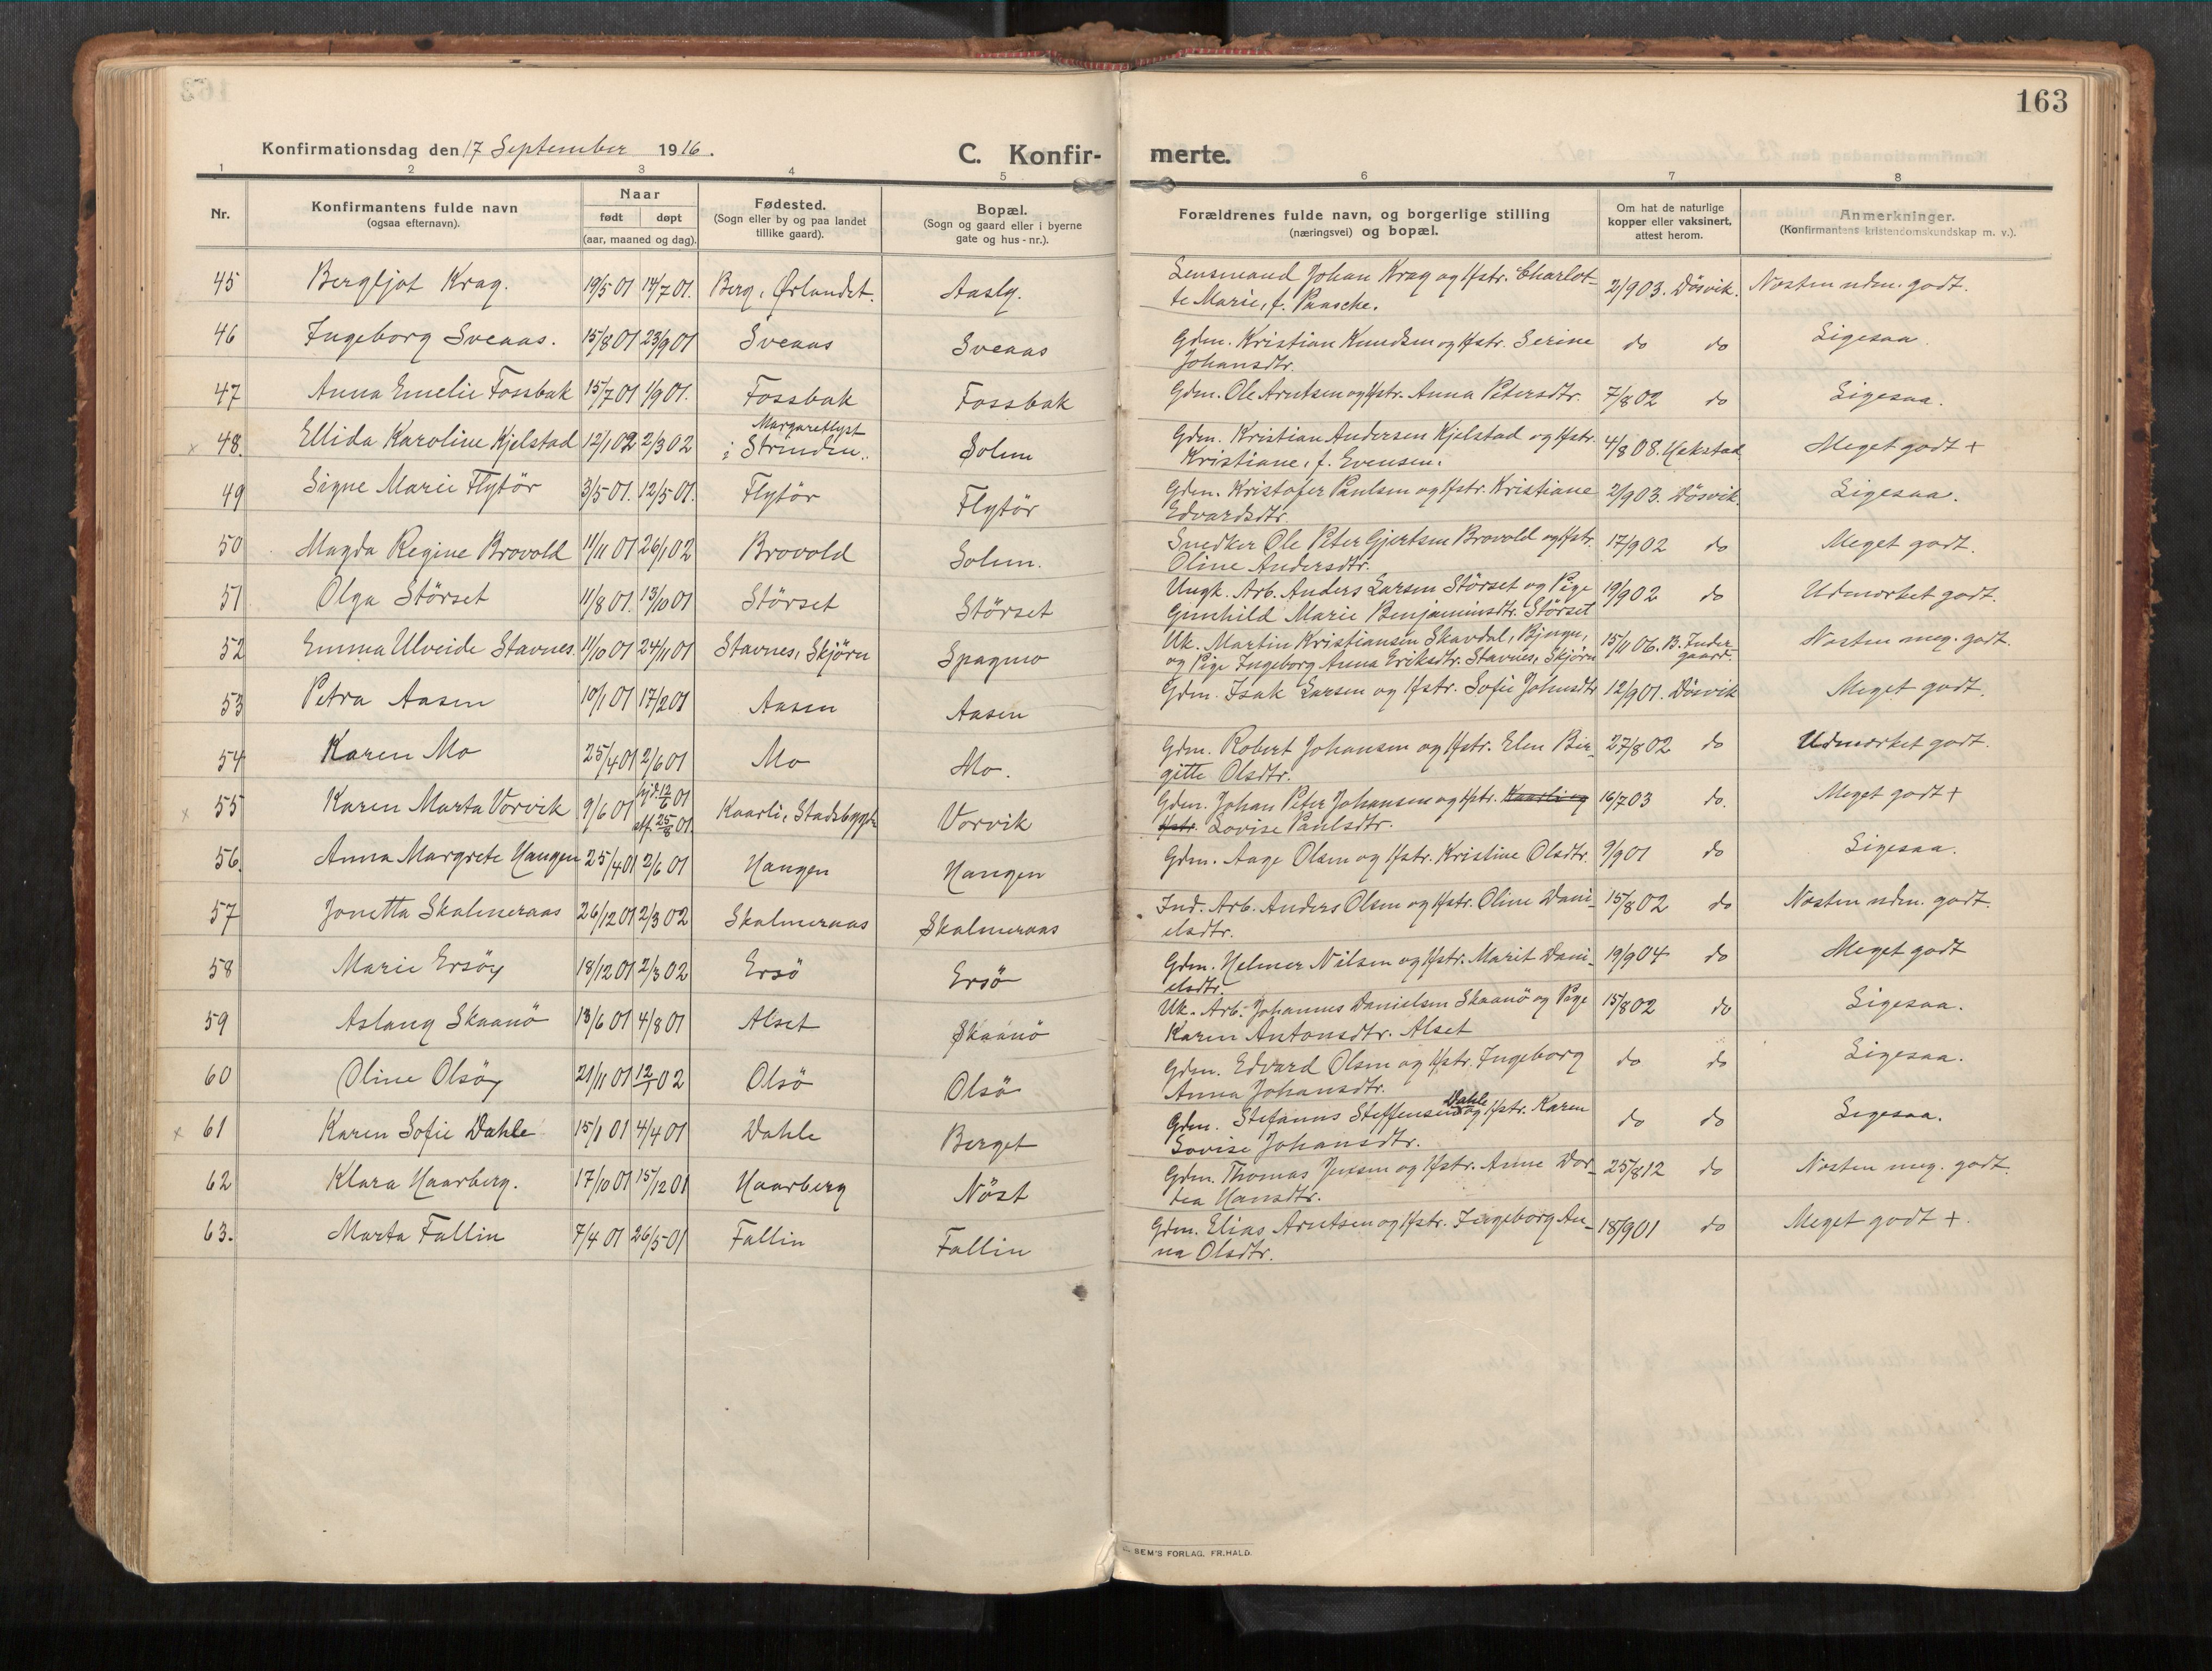 163
Konfirmationsdag den 17 September 1916.
C. Konfir- merte.
1 2 3 4 5 6 7 8
Nr. Konfirmantens fulde navn (ogsaa efternavn). Naar født døpt (aar, maaned og dag). Fødested. (Sogn eller by og paa landet tillike gaard). Bopæl. (Sogn og gaard eller i byerne gate og hus-nr.). Forældrenes fulde navn, og borgerlige stilling (næringsvei) og bopæl. Om hat de naturlige kopper eller vaksinert, attest herom. Anmerkninger. (Konfirmantens kristendomskundskap m. v.).
45 Bergljot Krag. 19/5 01 14/7 01. Berg, Ørlandet. Aasly. Lensmand Johan Krag og Hstr. Charlot-
te Marie, f. Paasche. 2/9 03. Døsvik. Næsten udm. godt.
46 Ingeborg Sveaas. 15/8 01 23/9 01 Sveaas Sveaas Gdm. Kristian Knudsen og Hstr. Serine
Johansdtr. do do Ligesaa.
47 Anna Emelie Fossbak 15/7 01 1/9 01. Fossbak Fossbak Gdm. Ole Arntsen og Hstr. Anna Petersdtr. 7/8 02 do Ligesaa.
x 48. Ellida Karoline Kjelstad 12/1 02 2/3 02 Margaretlyst
i Strinden. Solem Gdm. Kristian Andersen Kjelstad og Hstr.
Kristiane, f. Evensen. 4/8 08. Hekstad Meget godt +
49 Signe Marie Flytör 3/5 01. 12/5 01. Flytör Flytör Gdm. Kristofer Paulsen og Hstr. Kristiane
Edvardsdtr. 2/9 03. Døsvik. Ligesaa.
50 Magda Regine Brovold 11/11 01 26/1 02 Brovold Solem. Snedker Ole Peter Gjertsen Brovold og Hstr.
Oline Andersdtr. 17/9 02 do Meget godt.
51 Olga Störset 11/8 01. 13/10 01 Störset Störset Ungk. Arb. Anders Larsen Störset og Pige
Gunhild Marie Benjaminsdtr. Störset 19/9 02 do Udmærket godt.
52 Emma Ulveide Stavnes 11/10 01 24/11 01 Stavnes, Skjörn Spagmo Uk. Martin Kristiansen Skavdal, Bjugn,
og Pige Ingeborg Anna Eriksdtr. Stavnes, Skjörn 15/11 06. B. Inder-
gaard. Næsten meg. godt.
53 Petra Aasen 10/1 01 17/2 01 Aasen Aasen Gdm. Isak Larsen og Hstr. Sofie Johnsdtr 12/9 01. Døsvik Meget godt.
54 Karen Mo 25/4 01 2/6 01 Mo Mo. Gdm. Robert Johansen og Hstr. Elen Bir-
gitte Olsdtr. 27/8 02 do Udmærket godt.
x 55 Karen Marta Vorvik 9/6 01 hjd. 12/6 01
stf. 25/8 01 Kaarli, Stadsbygd Vorvik Gdm. Johan Peter Johansen og Hstr. Kaarli og
Hstr. Lovise Paulsdtr. 16/7 03 do. Meget godt +
56. Anna Margrete Haugen 25/4 01 2/6 01 Haugen Haugen Gdm. Aage Olsen og Hstr. Kristine Olsdtr. 9/9 01 do Ligesaa.
57 Jonetta Skalmeraas 26/12 01 2/3 02 Skalmeraas Skalmeraas Ind. Arb. Anders Olsen og Hstr. Oline Dani-
elsdtr. 15/8 02 do Næsten udm. godt.
58 Marie Ersöy 18/12 01 2/3 02 Ersö Ersö Gdm. Helmer Nilsen og Hstr. Marit Dani-
elsdtr. 19/9 04 do Meget godt
59 Aslaug Skaanö 13/6 01 4/8 01 Alset Skaanö Uk. Arb. Johannes Danielsen Skaanö og Pige
Karen Antonsdtr. Alset 15/8 02 do Ligesaa.
60 Oline Olsöy 21/11 01 12/1 02 Olsö Olsö Gdm. Edvard Olsen og Hstr. Ingeborg
Anna Johansdtr. do do Ligesaa.
x 61 Karen Sofie Dahle 15/1 01 4/4 01 Dahle Berget Gdm. Stefanus Steffensen Dahle og Hstr. Karen
Lovise Johansdtr. do do Ligesaa.
62 Klara Haarberg. 17/10 01 15/12 01 Haarberg Nöst Gdm. Thomas Jensen og Hstr. Anne Dor-
tea Hansdtr. 25/8 12 do Næsten meg. godt.
63. Marta Fallin 7/4 01 26/5 01 Fallin Fallin Gdm. Elias Arntsen og Hstr. Ingeborg An-
na Olsdtr. 18/9 01 do Meget godt +.
SEM'S FORLAG, FR.HALD.